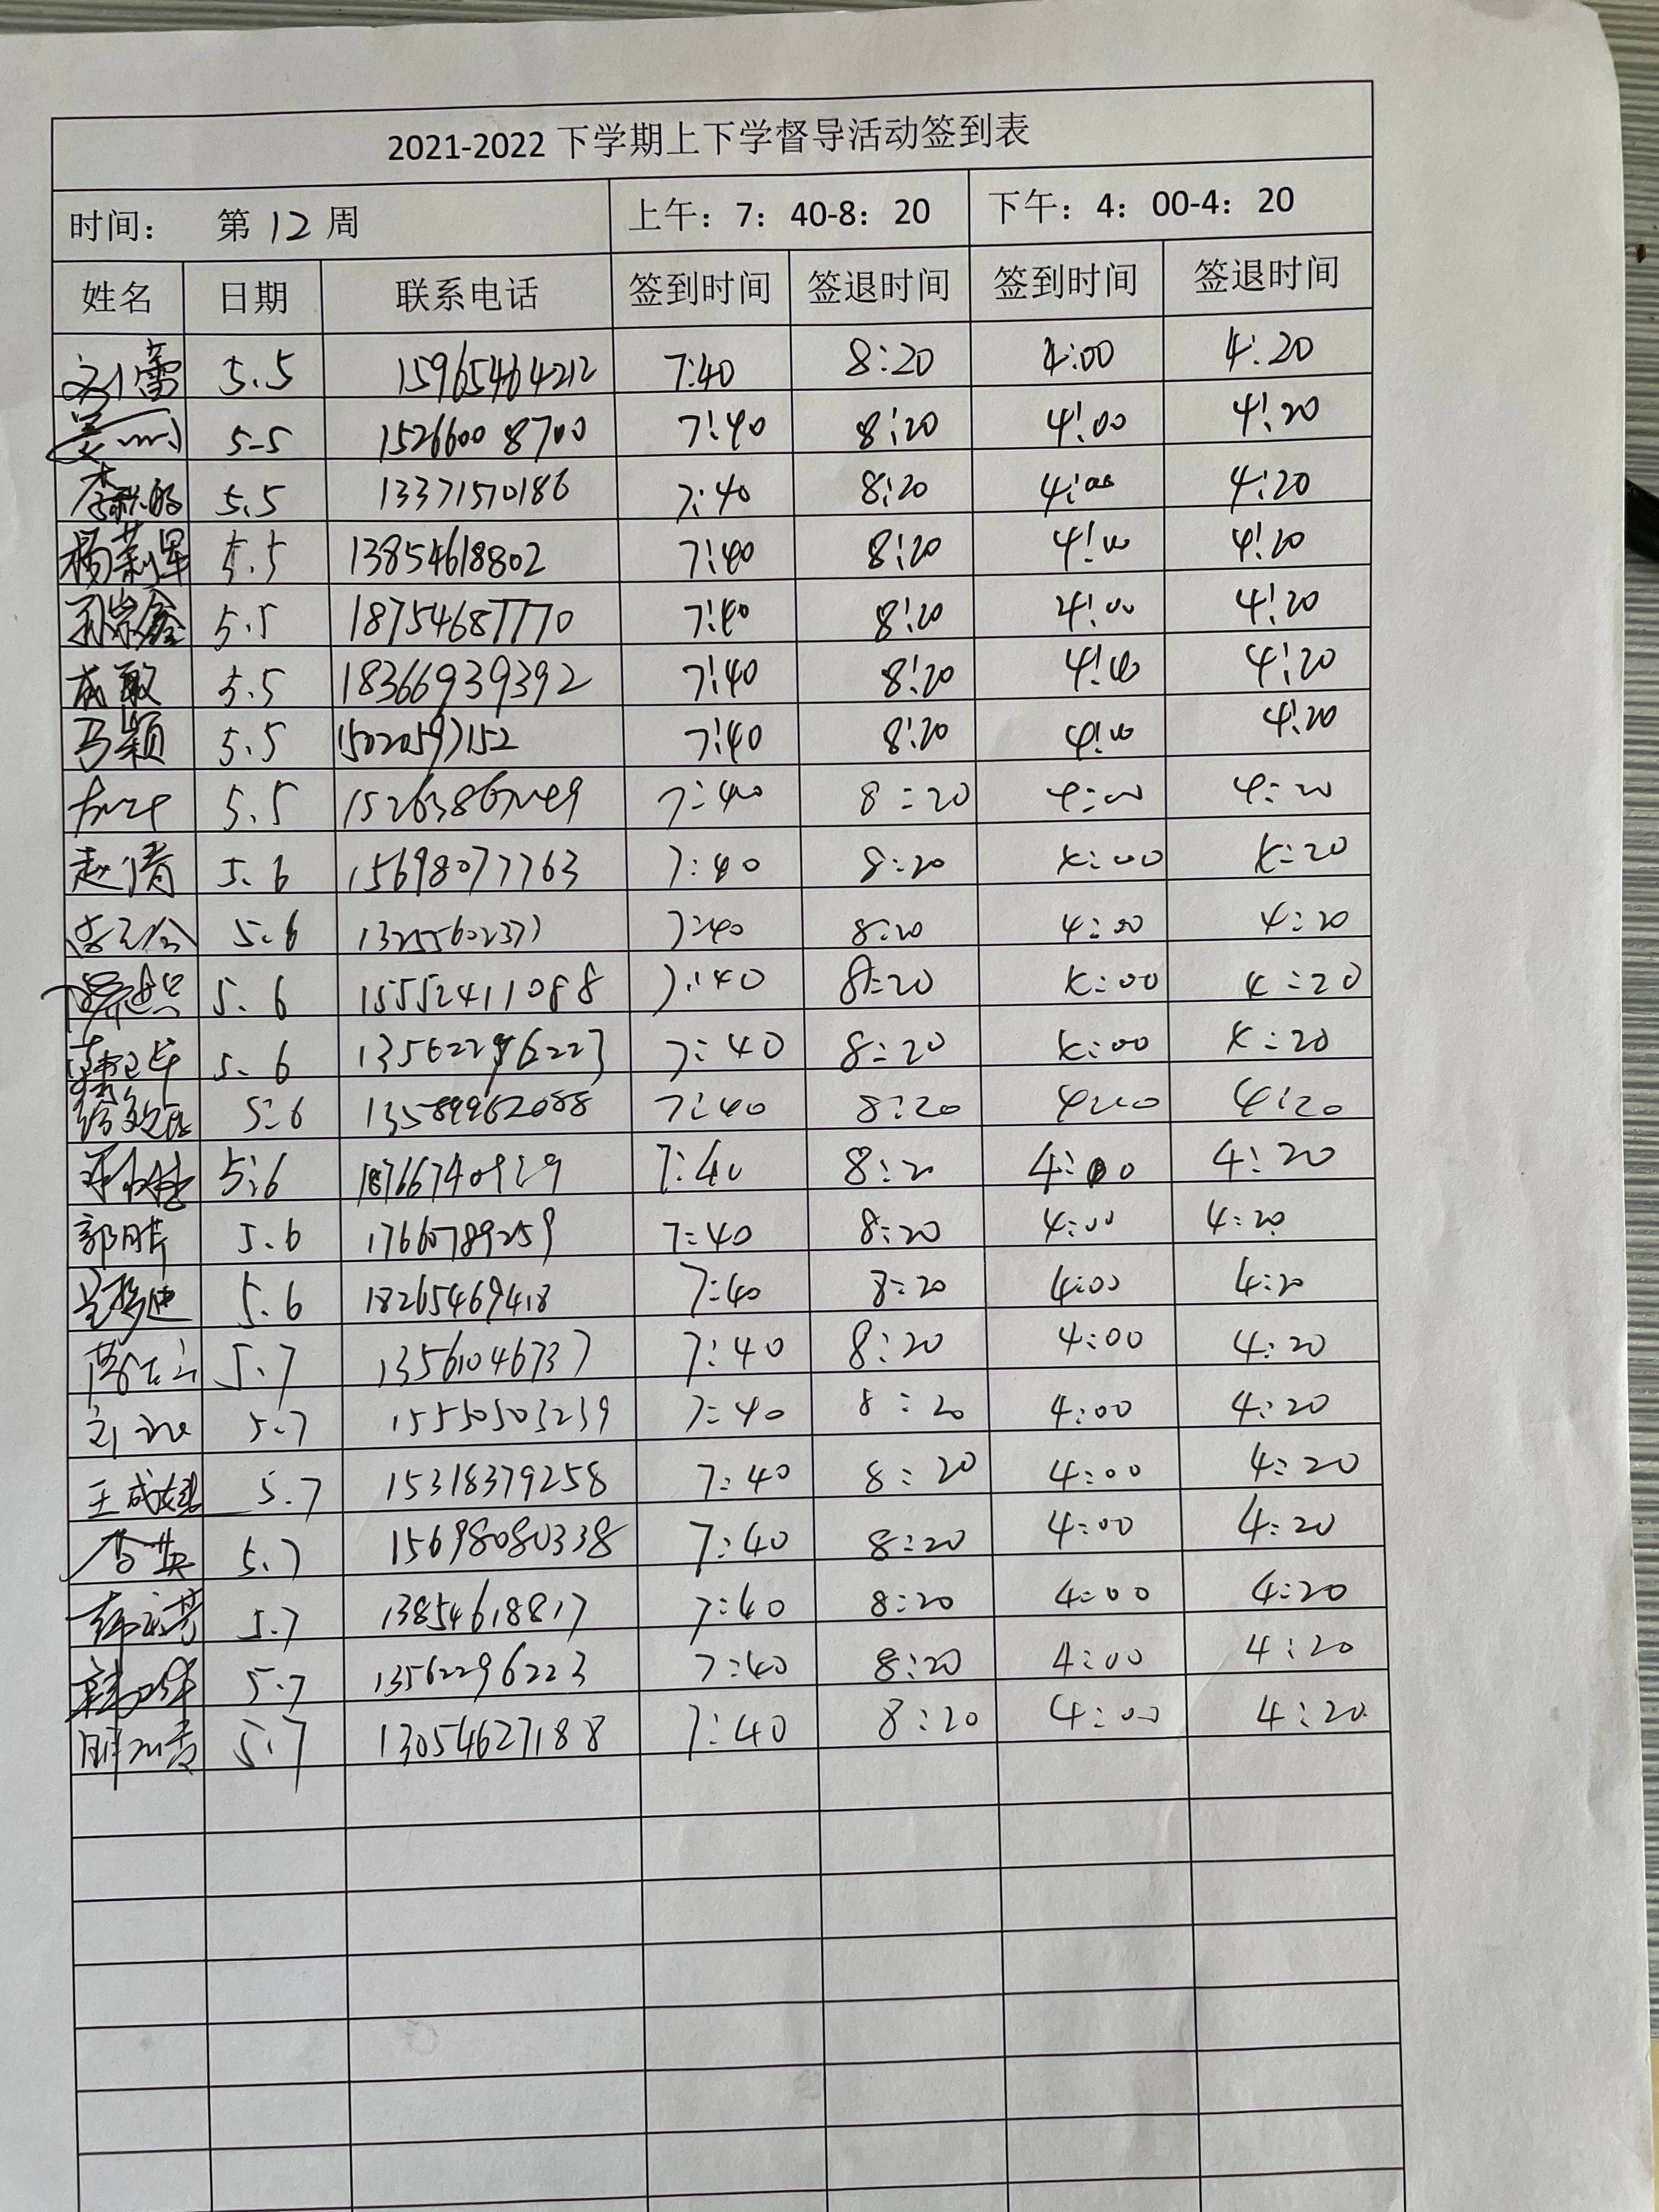 2021-2022 下学期上下学督导活动签到表
时间： 第 12 周 上午：7：40-8：20 下午：4：00-4：20
姓名 日期 联系电话 签到时间 签退时间 签到时间 签退时间
刘蕾 5.5 15965464212 7:40 8:20 4:00 4:20
5.5 15266008700 7:40 8:20 4:00 4:20
5.5 13371570186 7:40 8:20 4:00 4:20
杨莉军 5.5 13854618802 7:40 8:20 4:00 4:20
5.5 18754687770 7:40 8:20 4:00 4:20
成敏 5.5 18366939392 7:40 8:20 4:00 4:20
马颖 5.5 15020597152 7:40 8:20 4:00 4:20
5.5 7:40 8:20 4:00 4:20
赵倩 5.6 15698077763 7:40 8:20 4:00 4:20
5.6 13255602377 7:40 8:20 4:00 4:20
5.6 15552411088 7:40 8:20 4:00 4:20
5.6 7:40 8:20 4:00 4:20
5.6 13589962088 7:40 8:20 4:00 4:20
5.6 18766740929 7:40 8:20 4:00 4:20
郭胜 5.6 17660789259 7:40 8:20 4:00 4:20
5.6 18265469418 7:40 8:20 4:00 4:20
5.7 13561046737 7:40 8:20 4:00 4:20
5.7 15550503239 7:40 8:20 4:00 4:20
王成 5.7 15318379258 7:40 8:20 4:00 4:20
5.7 15698080338 7:40 8:20 4:00 4:20
5.7 13854618817 7:40 8:20 4:00 4:20
5.7 13562296223 7:40 8:20 4:00 4:20
5.7 13054627188 7:40 8:20 4:00 4:20